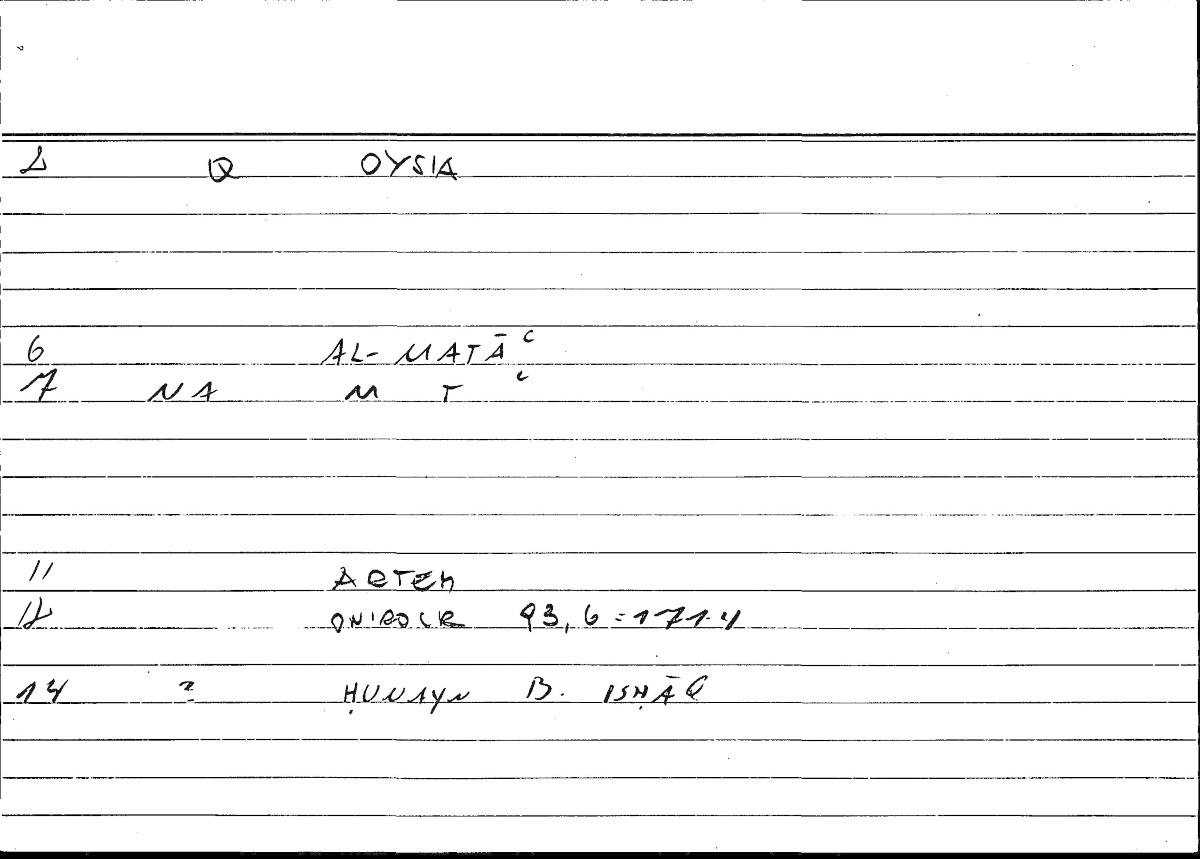 1 Q OYSIA
6 AL-MATĀʿ
7 NA M T ʿ
11 ARTEM
12 ONIROCR 93,6=171.4
14 2 ḤUNAYN B. ISḤĀQ